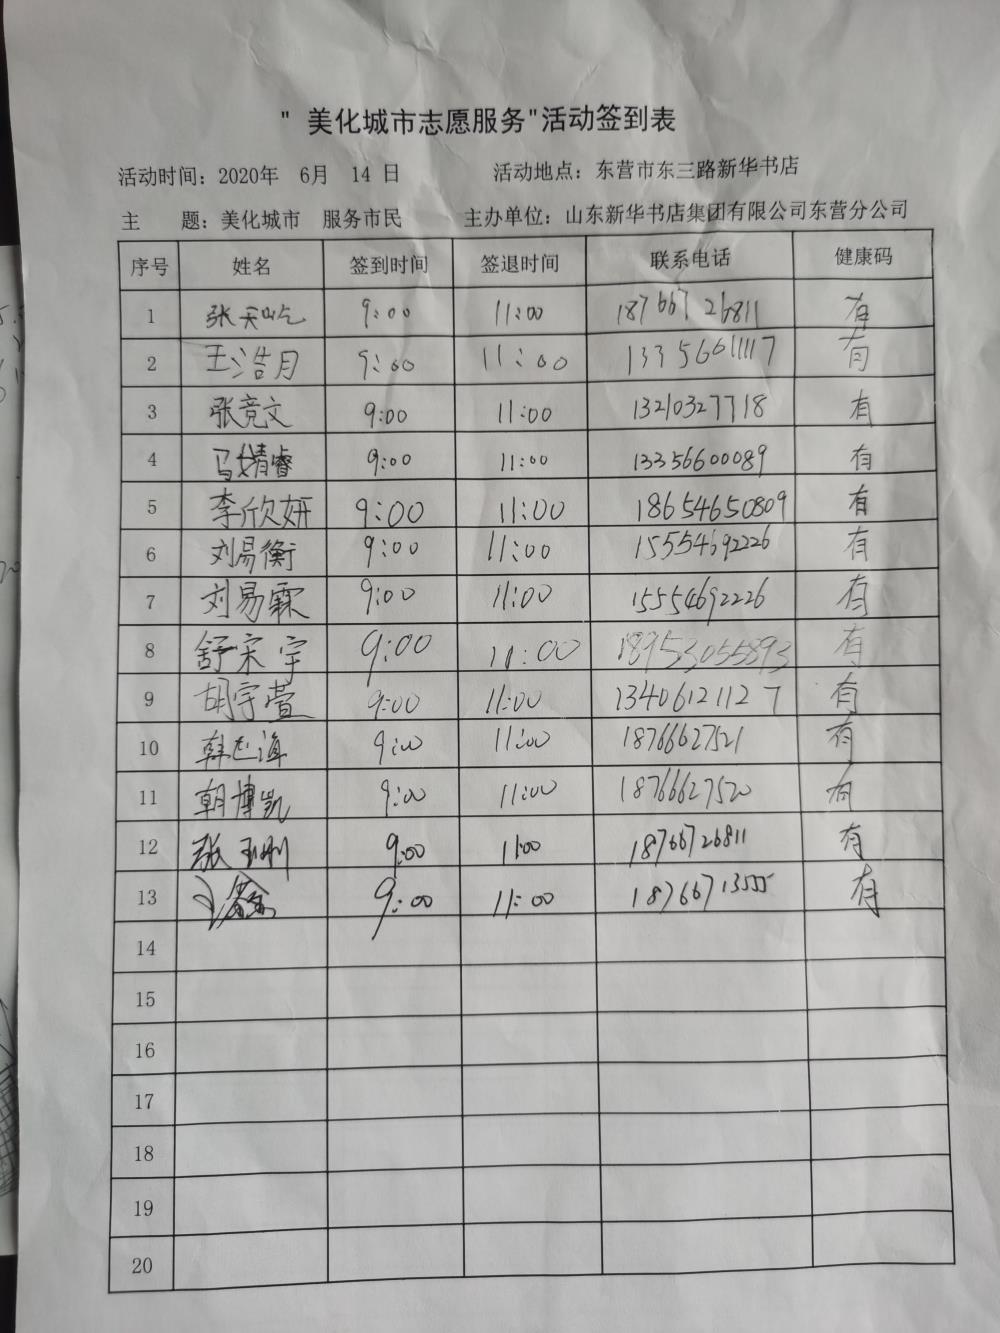 " 美化城市志愿服务"活动签到表
活动时间：2020年 6月 14 日 活动地点：东营市东三路新华书店
主 题：美化城市 服务市民 主办单位：山东新华书店集团有限公司东营分公司
序号 姓名 签到时间 签退时间 联系电话 健康码
1 张天屹 9:00 11:00 18766726811 有
2 王浩月 9:00 11:00 13356611117 有
3 张竞文 9:00 11:00 13210327718 有
4 马婧睿 9:00 11:00 13356600089 有
5 李欣妍 9:00 11:00 18654650809 有
6 刘易衡 9:00 11:00 15554692226 有
7 刘易霖 9:00 11:00 15554692226 有
8 舒宋宇 9:00 11:00 18953055893 有
9 胡宇萱 9:00 11:00 13406121127 有
10 9:00 11:00 18766627521 有
11 博凯 9:00 11:00 18766627520 有
12 张玉刚 9:00 11:00 18766726811 有
13 9:00 11:00 18766713555 有
14
15
16
17
18
19
20